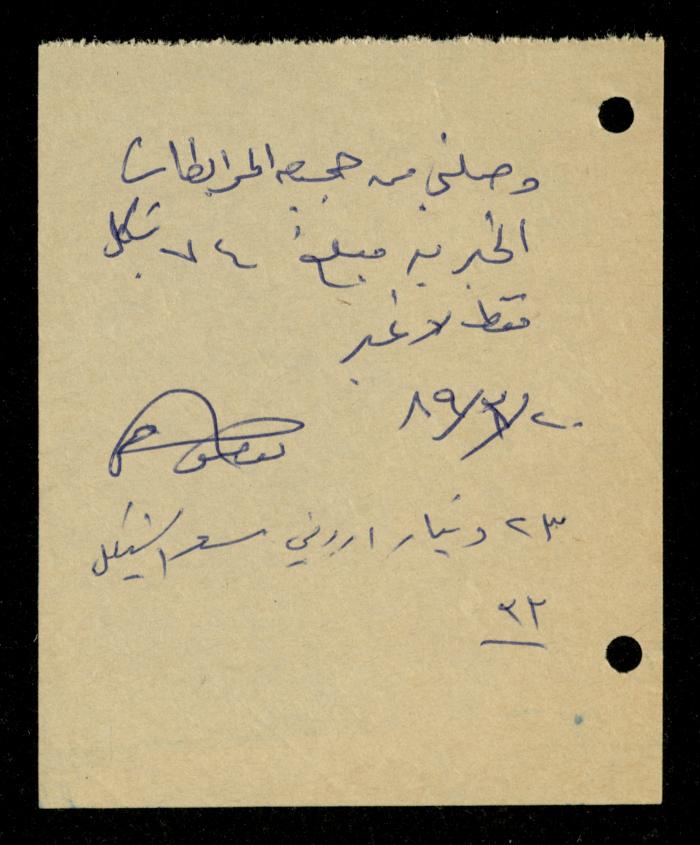 وصلني من جمعية المرابطات
الخيرية مبلغ ٧٤ شيكل
فقط لا غير
٨٩/٣/٢٠
٢٣ دينار اردني سعر الشيكل
٣٢